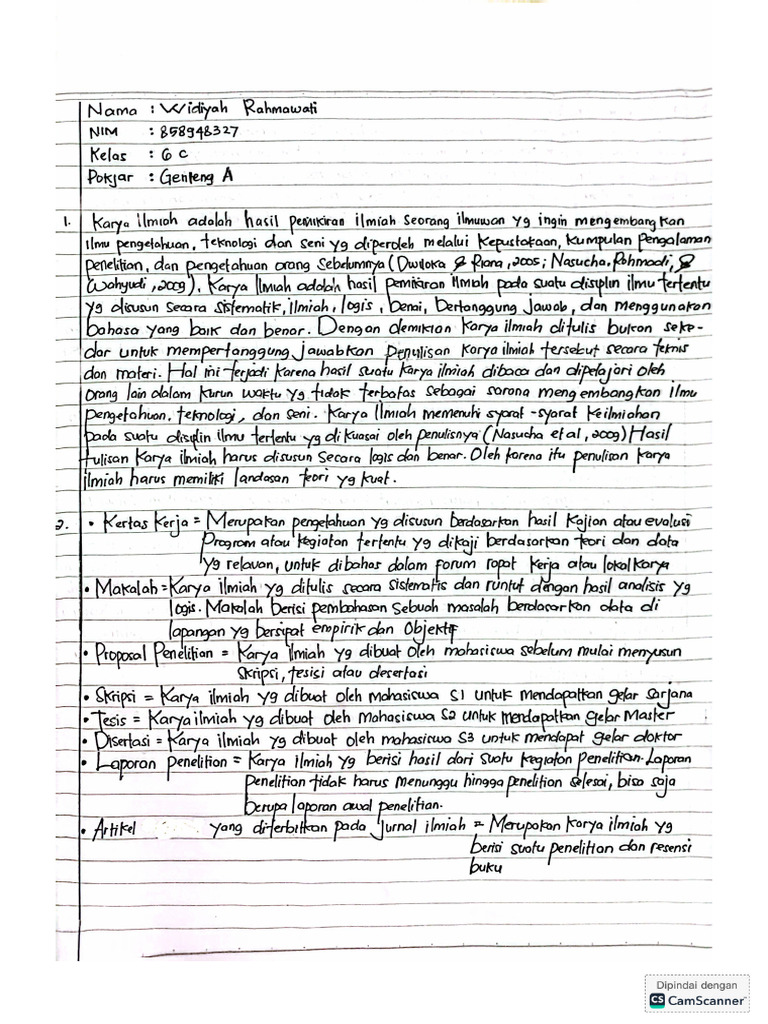 Nama : Widiyah Rahmawati
NIM : 858948327
Kelas : 6 C
Pokjar : Genteng A
1. Karya ilmiah adalah hasil pemikiran ilmiah seorang ilmuwan yg ingin mengembangkan
ilmu pengetahuan, teknologi dan seni yg diperoleh melalui kepustakaan, kumpulan Pengalaman
penelitian, dan pengetahuan orang sebelumnya (Dwiloka & Riana, 2005; Nasucha, Rohmadi, &
Wahyudi, 2009). Karya Ilmiah adalah hasil pemikiran Ilmiah pada suatu disiplin ilmu tertentu
yg disusun secara sistematik, ilmiah, logis, benar, bertanggung jawab, dan menggunakan
bahasa yang baik dan benar. Dengan demikian karya ilmiah ditulis bukan seke-
dar untuk mempertanggung jawabkan penulisan karya ilmiah tersebut secara teknis
dan materi. Hal ini terjadi karena hasil suatu karya ilmiah dibaca dan dipelajari oleh
orang lain dalam kurun waktu yg tidak terbatas sebagai sarana mengembangkan ilmu
pengetahuan, teknologi, dan seni. Karya Ilmiah memenuhi syarat-syarat keilmiahan
pada suatu disiplin ilmu tertentu yg dikuasai oleh penulisnya (Nasucha et al, 2009) Hasil
tulisan karya ilmiah harus disusun secara logis dan benar. Oleh karena itu penulisan karya
ilmiah harus memiliki landasan teori yg kuat.
2. • Kertas Kerja = Merupakan pengetahuan yg disusun berdasarkan hasil kajian atau evaluasi
Program atau kegiatan tertentu yg dikaji berdasarkan teori dan data
yg relavan, untuk dibahas dalam forum rapat kerja atau lokal karya
• Makalah = Karya ilmiah yg ditulis secara sistematis dan runtut dengan hasil analisis yg
logis. Makalah berisi pembahasan sebuah masalah berdasarkan data di
lapangan yg bersifat empirik dan Objektif
• Proposal Penelitian = Karya ilmiah yg dibuat oleh mahasiswa sebelum mulai menyusun
skripsi, tesisi atau desertasi
• Skripsi = Karya ilmiah yg dibuat oleh mahasiswa S1 untuk mendapatkan gelar sarjana
• Tesis = Karya ilmiah yg dibuat oleh mahasiswa S2 untuk mendapatkan gelar Master
• Disertasi = Karya ilmiah yg dibuat oleh mahasiswa S3 untuk mendapat gelar doktor
• Laporan penelitian = Karya Ilmiah yg berisi hasil dari suatu kegiatan penelitian. Laporan
penelitian tidak harus menunggu hingga penelitian selesai, bisa saja
berupa laporan awal penelitian.
• Artikel yang diterbitkan pada jurnal ilmiah = Merupakan karya ilmiah yg
berisi suatu penelitian dan resensi
buku
Dipindai dengan
CS CamScanner